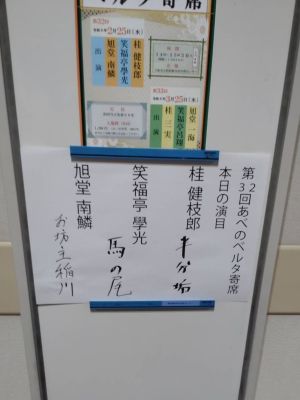 ベルタ寄席
第32回
2月25日(水)
出演
桂 健枝郎
笑福亭 學光
旭堂 南鱗
第33回
3月25日(水)
出演
旭堂 一海
笑福亭 呂翔
桂 三実
第32回あべのベルタ寄席
本日の演目
桂 健枝郎 半分垢
笑福亭 學光 馬の尾
旭堂 南鱗 お坊主稲川